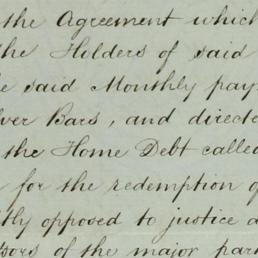 the Agreement which
the Holders of said
said Monthly pay
Bars, and directe
the Home Debt called
for the redemption of
opposed to justice a
of the major part